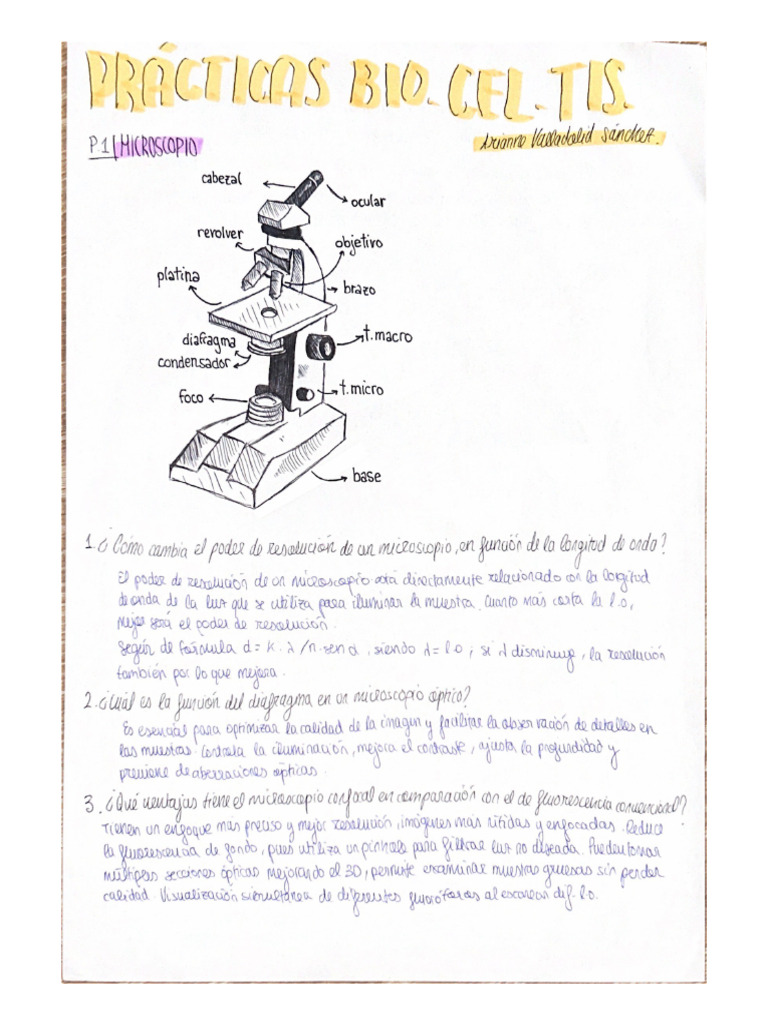 PRÁCTICAS BIO. CEL. TIS.
Arianna Valladolid Sánchez.
P.1 | MICROSCOPIO
cabezal
ocular
revolver
objetivo
platina
brazo
diafragma
t.macro
condensador
foco
t.micro
base
1. ¿Cómo cambia el poder de resolución de un microscopio, en función de la longitud de onda?
El poder de resolución de un microscopio está directamente relacionado con la longitud
de onda de la luz que se utiliza para iluminar la muestra. Cuanto más corta la l.o,
mejor será el poder de resolución.
Según la fórmula d = k · λ / n · sen α, siendo λ = l.o ; si λ disminuye, la resolución
también por lo que mejora.
2. ¿Cuál es la función del diafragma en un microscopio óptico?
Es esencial para optimizar la calidad de la imagen y facilitar la observación de detalles en
las muestras. Controla la iluminación, mejora el contraste, ajusta la profundidad y
previene de aberraciones ópticas.
3. ¿Qué ventajas tiene el microscopio confocal en comparación con el de fluorescencia convencional?
Tienen un enfoque más preciso y mejor resolución, imágenes más nítidas y enfocadas. Reduce
la fluorescencia de fondo, pues utiliza un pinhole para filtrar luz no deseada. Pueden tomar
múltiples secciones ópticas mejorando el 3D, permite examinar muestras gruesas sin perder
calidad. Visualización simultánea de diferentes fluoróforos al escanear dif. l.o.